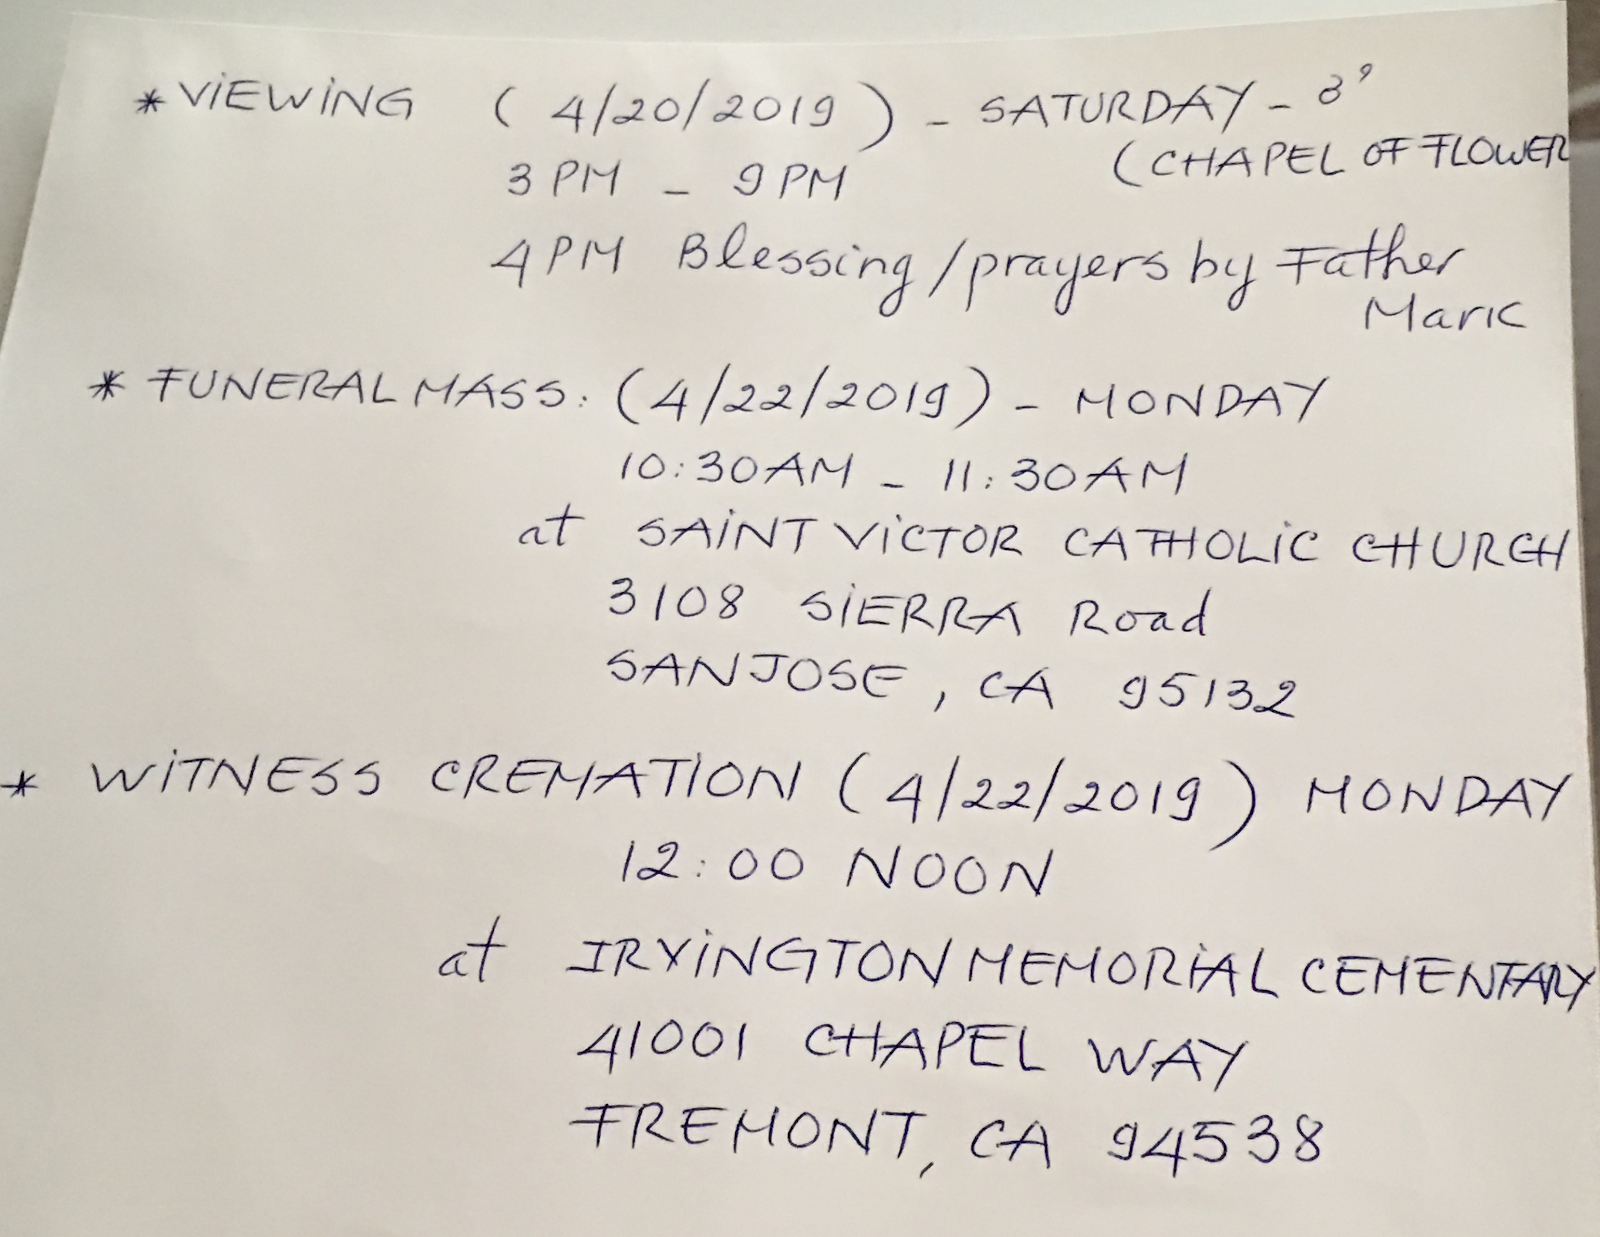 * ViEWiNG ( 4/20/2019 ) - SATURDAY -
(CHAPEL OF FLOWER
3 PM - 9 PM
4 PM Blessing / prayers by Father
Mark
* FUNERAL MASS: (4/22/2019) - MONDAY
10:30 AM - 11:30 AM
at SAiNT ViCTOR CATHOLiC CHURCH
3108 SiERRA Road
SAN JOSE, CA 95132
* WiTNESS CREMATiON (4/22/2019) MONDAY
12:00 NOON
at IRViNGTON MEMORiAL CEMENTARY
41001 CHAPEL WAY
FREMONT, CA 94538